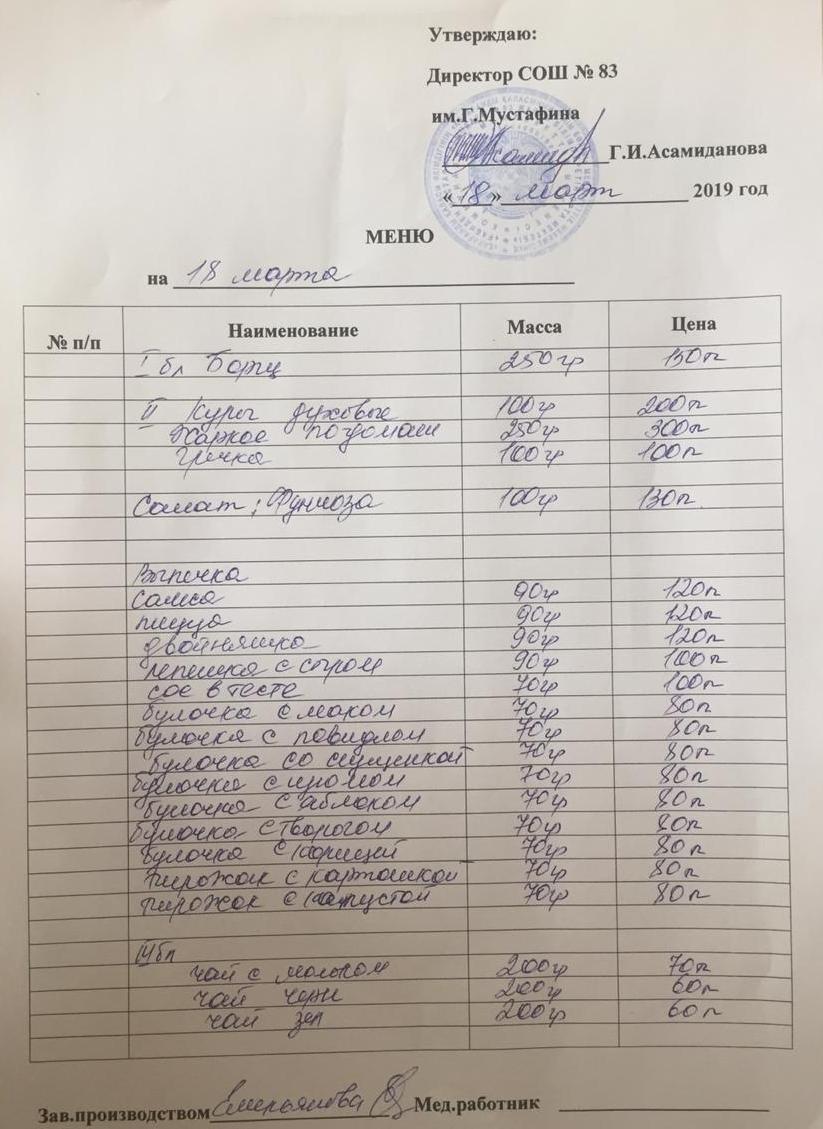 Утверждаю:
Директор СОШ № 83
им.Г.Мустафина
Г.И.Асамиданова
«18» март 2019 год
МЕНЮ
на 18 марта
№ п/п Наименование Масса Цена
I бл Борщ 250гр 130т
II Куры духовые 100гр 200т
Жаркое по домаш 250гр 300т
Гречка 100гр 100т
Салат: Фунчоза 100гр 130т.
Выпечка
самса 90гр 120т
пицца 90гр 120т
двойняшка 90гр 120т
лепешка с сыром 90гр 100т
сос в тесте 70гр 100т
булочка с маком 70гр 80т
булочка с повидлом 70гр 80т
булочка со сгущенкой 70гр 80т
булочка с изюмом 70гр 80т
булочка с яблоком 70гр 80т
булочка с творогом 70гр 80т
булочка с корицей 70гр 80т
пирожок с картошкой 70гр 80т
пирожок с капустой 70гр 80т
III бл
чай с молоком 200гр 70т
чай черн 200гр 60т
чай зел 200гр 60т
Зав.производством Емельянова Мед.работник